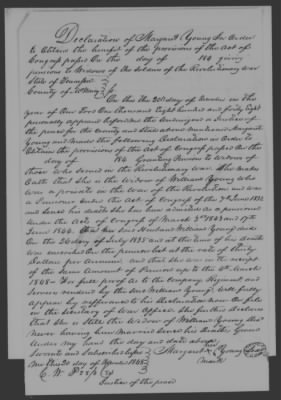 Declaration of Margaret Young In Order
to Obtain the benefit of the provisions of the Act of
Congress passed On the day of 184 giving
pension to Widows of the Soldiers of the Revolutionary war
State of Tennessee
County of
On this the 20th day of in the
year of Our Lord One thousand Eight hundred and forty Eight
personally appeared before the Undersigned a Justice of
the peace for the County and State above mentioned Margaret
Young and Makes the following Declaration in Order to
Obtain the provisions of the Act of Congress passed On the
day of 184 Granting Pensions to Widows of
those who Served in the Revolutionary War. She makes
Oath that she is the Widow of William Young who
was a private in the War of the Revolution and was
a Pensioner Under the Act of Congress of the 7th June 1832
and Since his death She has been admitted as a pensioner
Under the Acts of Congress of March 3rd 1843 and 17th
June 1844. That her Husband William Young died
On the 26 day of July 1835 and at the time of his death
was enrolled On the pension list at the rate of thirty
Dollars per Annum, and that She was in the receipt
of the Same Amount of Pension up to the 4th March
1848 - For full proof as to the Company Regiment and
Service rendered by the said William Young Will fully
appear by reference to his Declaration Now On file
in the Secretary of War Office. She further declares
that She is still the Widow of William Young
never having Since Married Since his Death. Given
Under My hand the day and date above
Sworn to and Subscribed before
Me this 20 day of 1848
Margaret her x mark Young
Justice of the peace